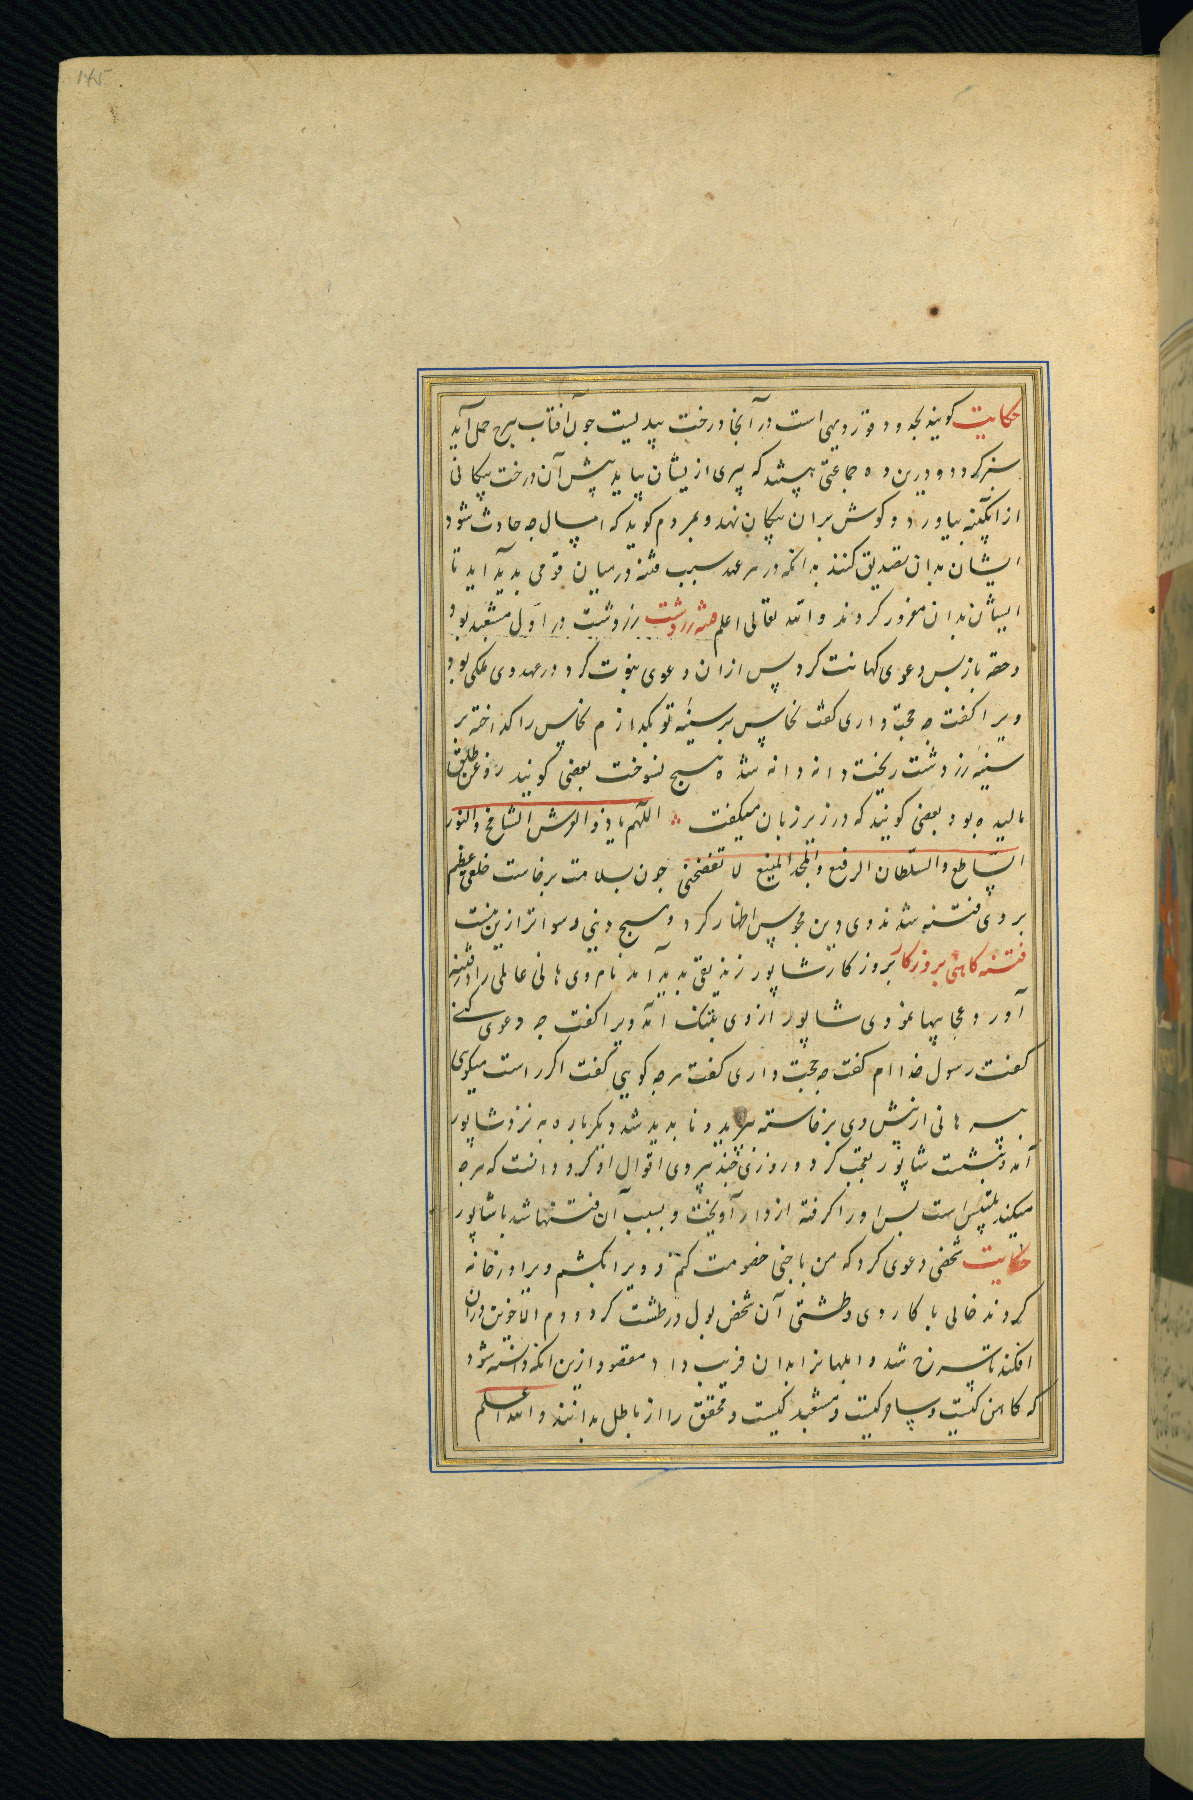 ۱۴۵
حکایت کویند بحدود قزوین دهی است در آنجا درخت بیدیست جون آفتاب ببرج حمل آید
سبز کردد و درین ده جماعتی باشند که پیری از یشان بیاید پیش آن درخت پیکانی
از آبکینه بیاورد و کوش بر ان پیکان نهد و بمردم کوید که امسال جه حادث شود
ایشان بدان تصدیق کنند بدانکه در هر عهد سبب فتنه در میان قومی بدید آید تا
ایشان بدان مغرور کردند والله تعالی اعلم فتنه زردشت زردشت در اول مشعبد بود
و حقه باز پس دعوی کهانت کرد پس از ان دعوی نبوت کرد در عهد وی ملکی بود
ویرا کفت جه حجت داری کفت نحاس بر سینه تو بکدازم نحاس را کداخته بر
سینه زردشت ریخت دانه دانه شد و هیج نسوخت بعضی کویند روغن طلق
مالیده بود بعضی کویند که در زیر زبان میکفت اللهم یا ذو العرش الشامخ والنور
الساطع والسلطان الرفیع والمجد المنیع لا تفضحنی جون بسلامت برخاست خلقی عظیم
بر وی فتنه شدند وی دین مجوس اظهار کرد و هیج دینی رسواتر ازین نیست
فتنه کاهنی بروزکار بروزکار شاپور زندیقی بدید آمد نام وی مانی عالمی را در فتنه
آورد و عجایبها نمودی شاپور از وی بتنک آمد ویرا کفت جه دعوی کنی
کفت رسول خدا ام کفت جه حجت داری کفت هرجه کویی کفت اکر راست میکویی
بپر مانی از پیش وی برخاسته بپرید و نابدید شد دیکرباره به نزد شاپور
آمد و بنشست شاپور تعجب کرد و روزی چند پیروی اقوال او کرد و دانست که هرجه
میکند تلبیس است پس او را کرفته از دار آویخت و بسبب آن فتنها شد با شاپور
حکایت شخصی دعوی کرد که من با جنی خصومت کنم و ویرا بکشم ویرا در خانه
کردند خالی با کاردی و طشتی آن شخص بول در طشت کرد و دم الاخوین در ان
افکند تا سرخ شد و ابلهانرا بدان فریب داد مقصود ازین انکه دانسته شود
که کاهن کیست و ساحر کیست و مشعبد کیست و محقق را از باطل بدانند والله اعلم